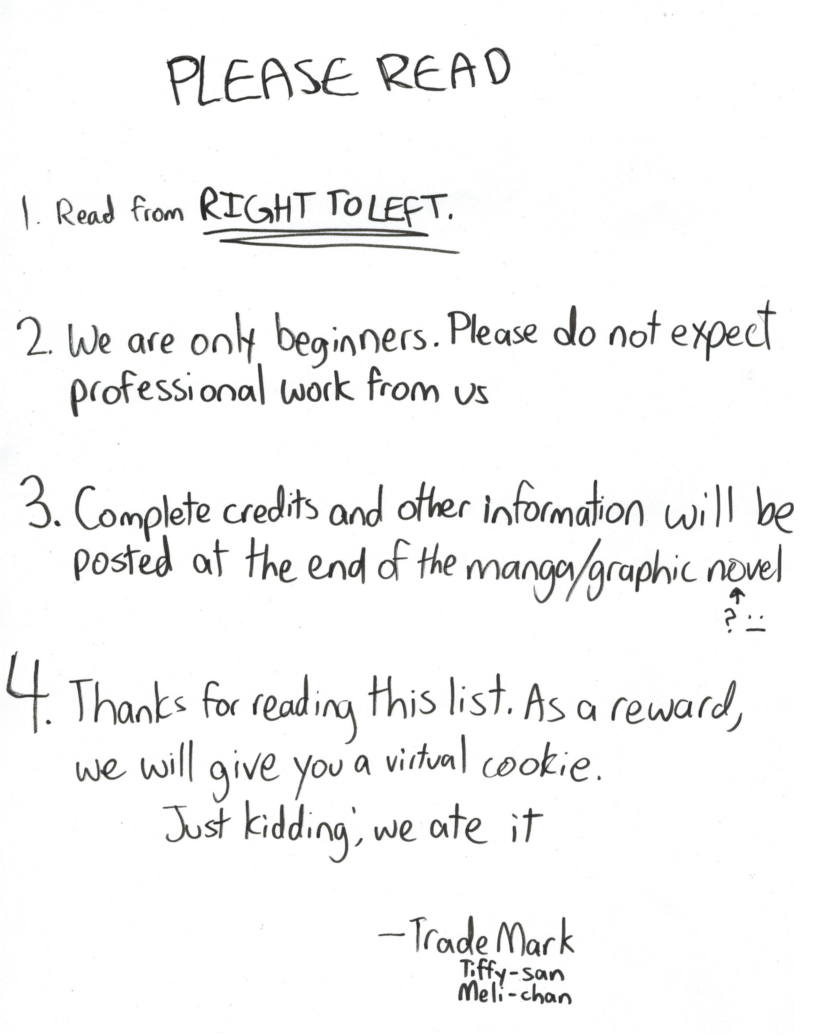 PLEASE READ
1. Read from RIGHT TO LEFT.
2. We are only beginners. Please do not expect
professional work from us
3. Complete credits and other information will be
posted at the end of the manga/graphic novel
?
4. Thanks for reading this list. As a reward,
we will give you a virtual cookie.
Just kidding; we ate it
-Trade Mark
Tiffy-san
Meli-chan